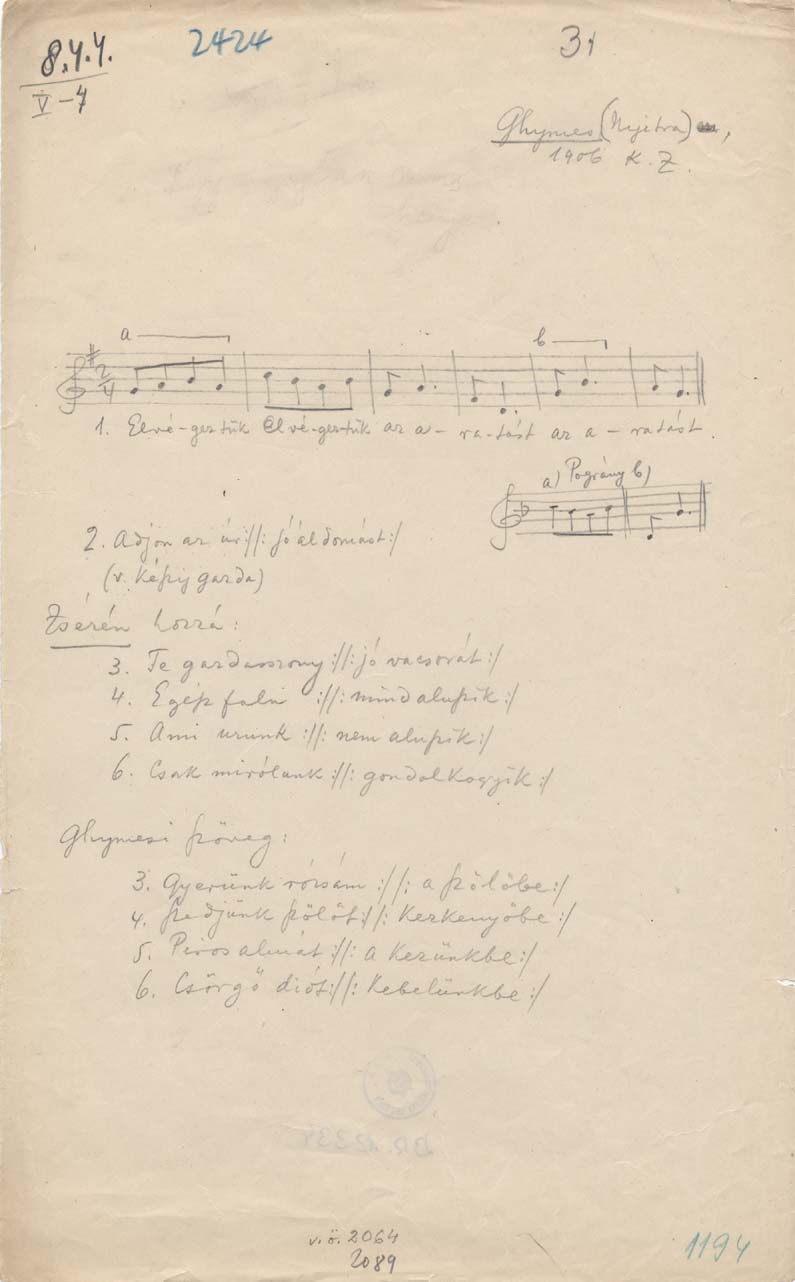 8.4.4.
V-4
2424
31
Ghymes (Nyitra),
1906 K. Z.
a
b
2
4
1. Elvé-geztük Elvé-geztük az a-ra-tást az a-ratást.
a) Pográny b)
2. Adjon az úr :/: jó áldomást :/
(v. képíj gazda)
Zsérén hozzá:
3. Te gazdasszony :/: jó vacsorát :/
4. Egész falu :/: mind aluszik :/
5. Ami urunk :/: nem aluszik :/
6. Csak mirólunk :/: gondolkogyik :/
Ghymesi szöveg:
3. Gyerünk rózsám :/: a szőlőbe :/
4. Szedjünk szőlőt :/: kezkenyőbe :/
5. Piros almát :/: a kezünkbe :/
6. Csörgő diót :/: kebelünkbe :/
v.ö. 2064
2089
1194